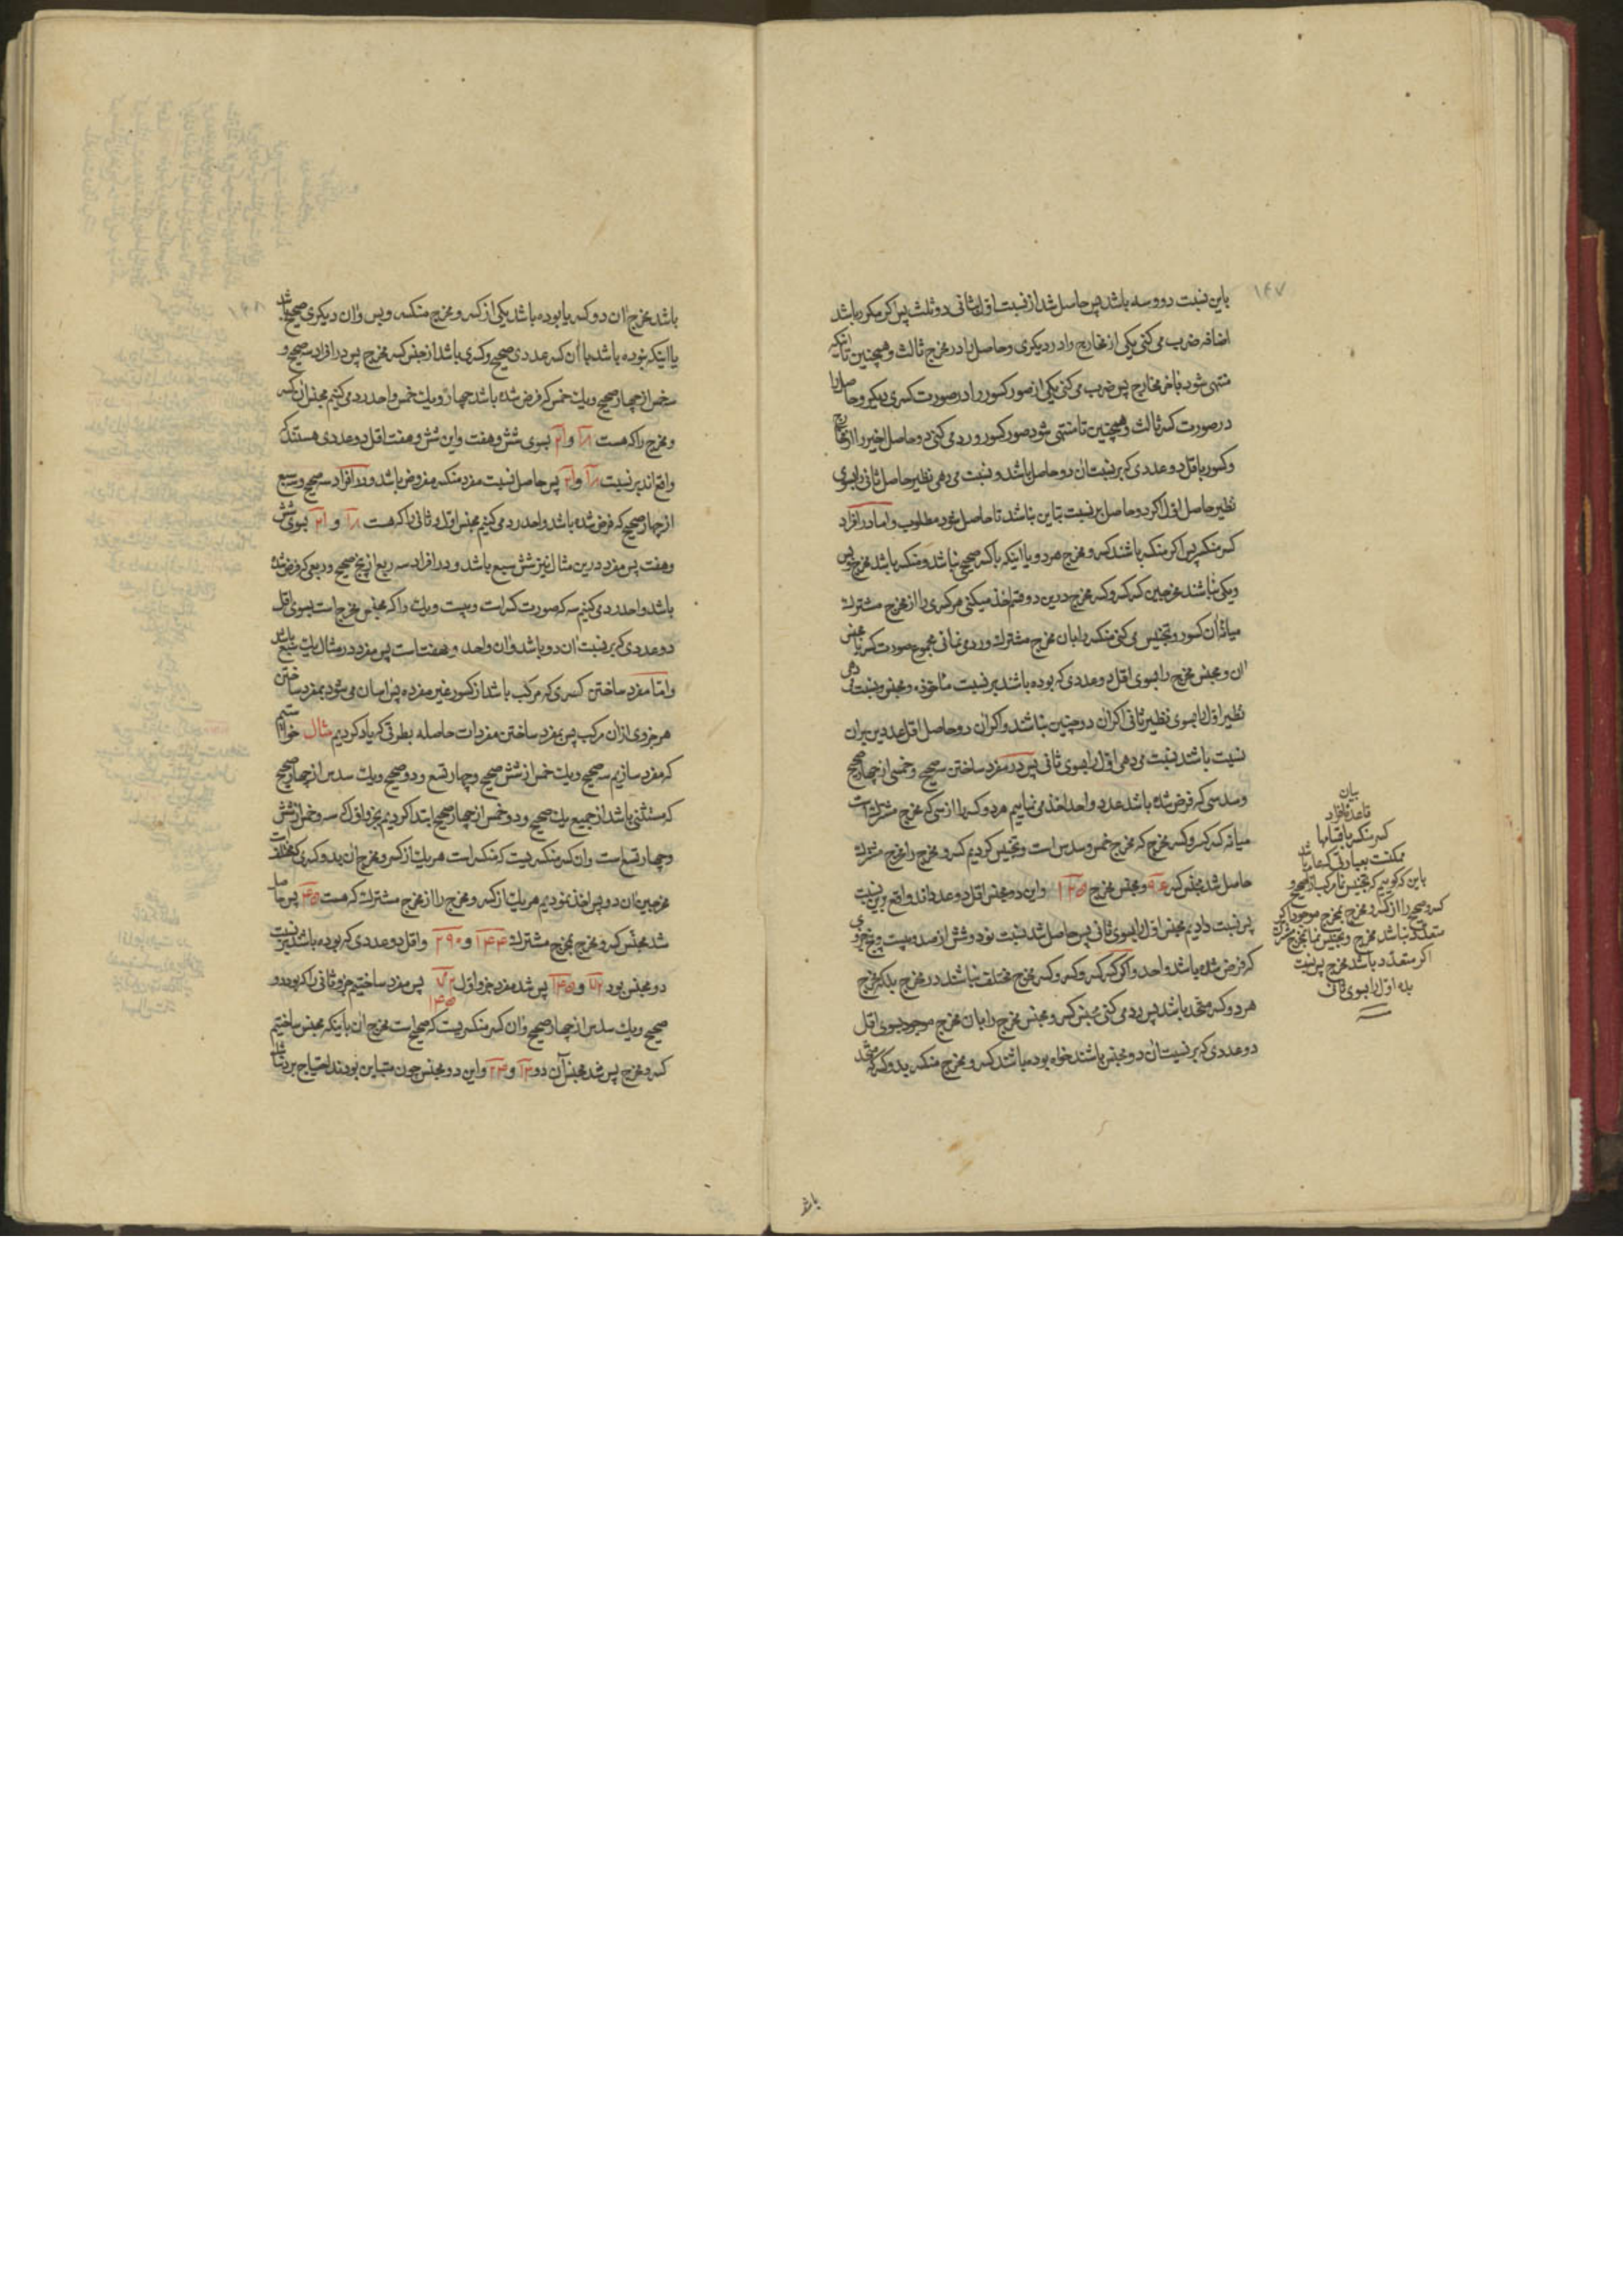 ۱۴۷
باین نسبت دو و سه باشد پس حاصل شد از نسبت اول بثانی دو ثلث پس اگر مکرر باشد
اضافه ضرب می کنی یکی از مخارج را در دیگری و حاصل را در مخرج ثالث و همچنین تا اینکه
منتهی شود باخر مخارج پس ضرب می کنی یکی از صور کسور را در صورت کسری دیگر و حاصل را
در صورت کسر ثالث و همچنین تا منتهی شود صور کسور و رد می کنی دو حاصل اخیر را از مخارج
و کسور باقل دو عددی که بر نسبت ان دو حاصل باشد و نسبت می دهی نظیر حاصل ثانی را بسوی
نظیر حاصل اول اگر دو حاصل بر نسبت تباین نباشد تا حاصل شود مطلوب و اما در افراد
کسر منکسر پس اگر منکسر باشند کسر و مخرج هر دو یا اینکه با کسر صحیحی نباشد و منکسر باشد مخرج و پس
و یکی نباشند مخرجین کسر کسر و کسر مخرج درین دو قسم اخذ میکنی هر کسری را از مخرج مشترک
میانه ان کسور و تجنیس می کنی منکسر را بان مخرج مشترک و رد می نمائی مجموع صورت کسر با مجنس
ان و مجنس مخرج را بسوی اقل دو عددی که بوده باشند بر نسبت ماخوذه و مجنس و نسبت می دهی
نظیر اول را بسوی نظیر ثانی اگر ان دو چنین نباشند و اگر ان دو حاصل اقل عددین بران
نسبت باشند نسبت می دهی اول را بسوی ثانی پس در مفرد ساختن سه صحیح و خمسی از چهار صحیح
و سدسی که فرض شده باشد عدد واحد اخذ می نماییم هر دو کسر را از سی که مخرج مشترک است
میانه کسر کسر و کسر مخرج که مخرج خمس و سدس است و تجنیس کردیم کسر و مخرج را بمخرج مشترک
حاصل شد مجنس کسر ۹۶ و مجنس مخرج ۱۲۵ و این دو مجنس اقل دو عدداند واقع برین نسبت
پس نسبت دادیم مجنس اول را بسوی ثانی پس حاصل شد نسبت نود و شش از صد و بیست و پنج جزوی
که فرض شده باشد واحد و اگر کسر کسر و کسر مخرج مختلف نباشند در مخرج بلکه مخرج
هر دو کسر متحد باشد پس رد می کنی مجنس کسر و مجنس مخرج را بان مخرج موجود بسوی اقل
دو عددی که بر نسبت ان دو مجنس باشند خواه بوده باشند کسر و مخرج منکسر بدو کسر که متحد
باشد
بیان
قاعده افراد
کسر منکسر باقسامها
ممکنست بعبارتی که عام باشد
باین که گوییم که تجنیس نما مرکب از صحیح و
کسر و صحیح را از کسر و مخرج بمخرج موجود اگر
متعدد نباشد مخرج و تجنیس نما بمخرج مشترک
اگر متعدد باشد مخرج پس نسبت
بده اول را بسوی ثانی
۱۴۸
باشد مخرج ان دو کسر یا بوده باشد یکی از کسر و مخرج منکسر و بس و ان دیگری صحیح باشد
یا اینکه بوده باشد با ان کسر عددی صحیح و کسری باشد از جنس کسر مخرج پس در افراد سه صحیح و
سه خمس از چهار صحیح و یک خمس که فرض شده باشد چهار و یک خمس واحد رد می کنیم مجنس ان کسر
و مخرج را که هست ۱۸ و ۲۱ بسوی شش و هفت و این شش و هفت اقل دو عددی هستند که
واقع اند بر نسبت ۱۸ و ۲۱ پس حاصل نسبت مفرد منکسر مفروض باشد و در افراد سه صحیح و سبع
از چهار صحیح که فرض شده باشد واحد رد می کنیم مجنس اول و ثانی را که هست ۱۸ و ۲۱ بسوی شش
و هفت پس مفرد درین مثال نیز شش سبع باشد و در افراد سه ربع از پنج صحیح و ربعی که فرض شده
باشد واحد رد می کنیم سه که صورت کسر است و بیست و یک را که مجنس مخرج است بسوی اقل
دو عددی که بر نسبت ان دو باشد و ان واحد و هفت است پس مفرد در مثال یک سبع باشد
و اما مفرد ساختن کسری که مرکب باشد از کسور غیر مفرده پس اسان می شود بمفرد ساختن
هر جزوی از ان مرکب پس بمفرد ساختن مفردات حاصله بطرقی که یاد کردیم مثال خواستیم
که مفرد سازیم سه صحیح و یک خمس از شش صحیح و چهار تسع و دو صحیح و یک سدس از چهار صحیح
که مستثنی باشد از جمیع یک صحیح و دو خمس از چهار صحیح ابتدا کردیم بجزو اول که سه و خمس از شش
و چهار تسع است و ان کسر منکسریست که منکسر است هر یک از کسر و مخرج ان بدو کسری که مختلف است
مخرجین ان دو پس اخذ نمودیم هر یک از کسر و مخرج را از مخرج مشترک که هست ۴۵ پس حاصل
شد مجنس کسر و مخرج بمخرج مشترک ۱۴۴ و ۲۹۰ و اقل دو عددی که بوده باشد بر نسبت
دو مجنس بود ۷۲ و ۱۴۵ پس شد مفرد جزو اول ۷۲ ۱۴۵ پس مفرد ساختیم جزو ثانی را که بود دو
صحیح و یک سدس از چهار صحیح و ان کسر منکسریست که صحیح است مخرج ان باینکه مجنس ساختیم
کسر و مخرج پس شد مجنس آن دو ۱۳ و ۲۴ و این دو مجنس چون متباین بودند احتیاج برد نباشد